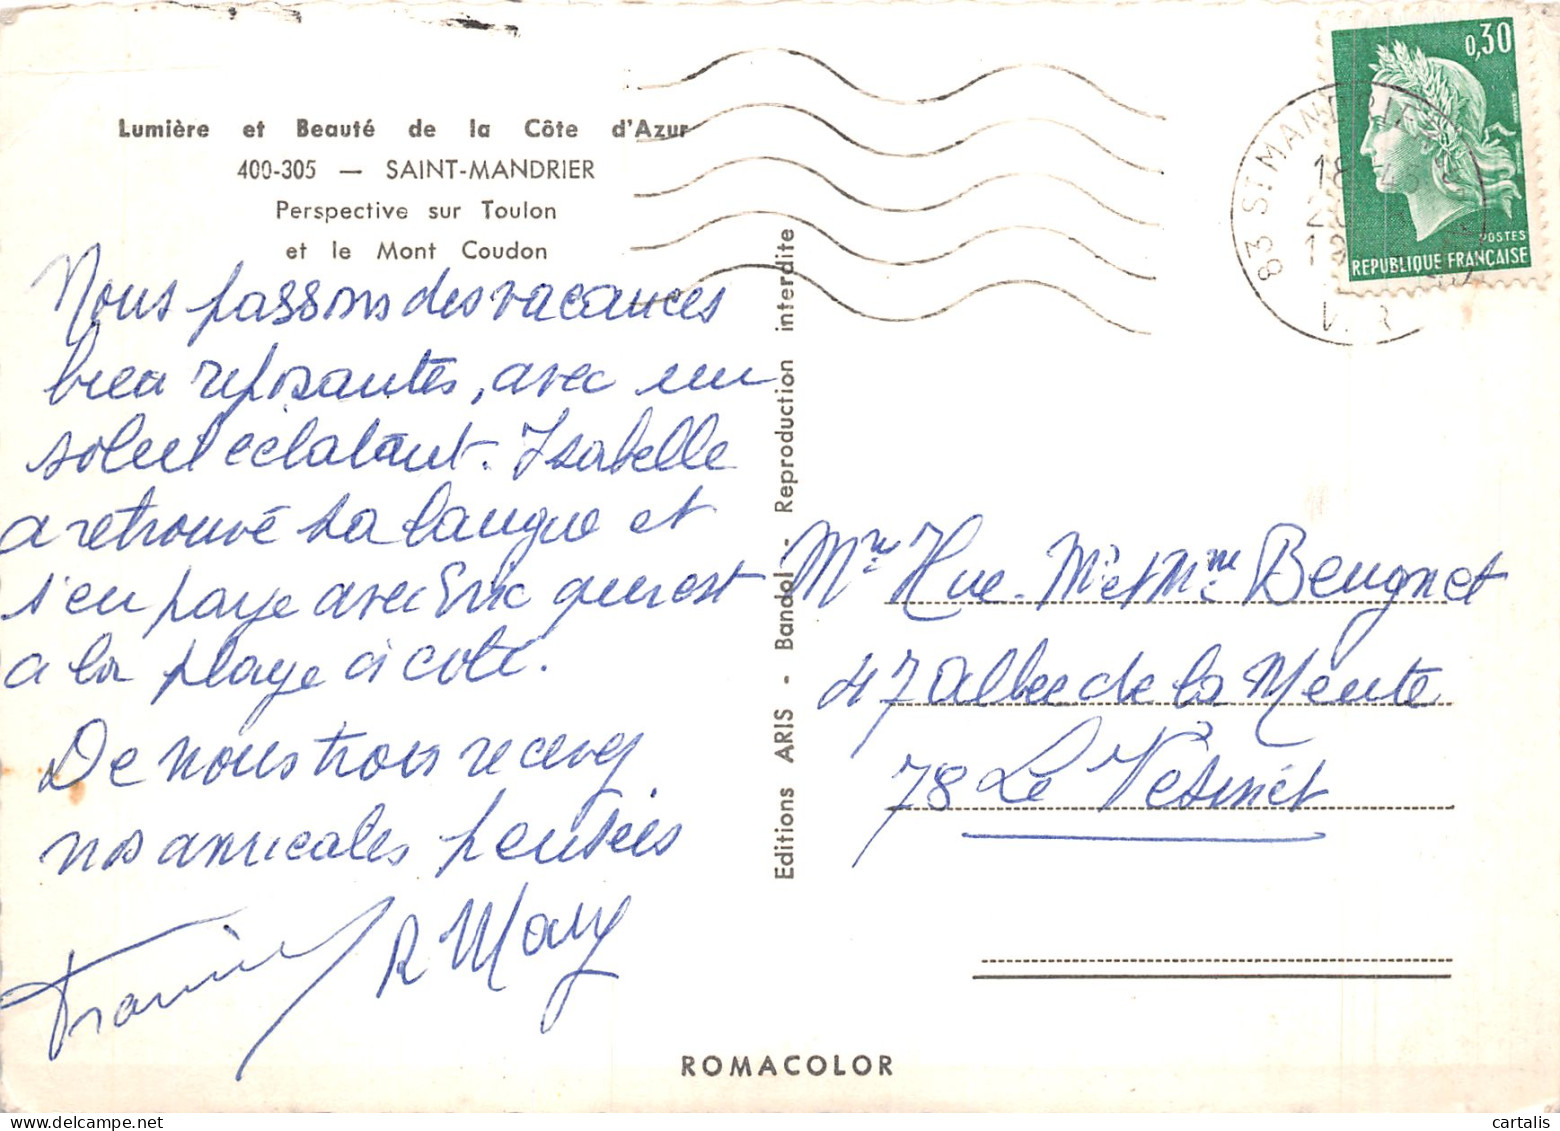 Lumière et Beauté de la Côte d'Azur
400-305 — SAINT-MANDRIER
Perspective sur Toulon
et le Mont Coudon
Nous passons des vacances
bien reposantes, avec un
soleil éclatant. Isabelle
a retrouvé sa langue et
s'en paye avec Eric qui est
a la plage à coté.
De nous trois recevez
nos amicales pensées
R Mary
Editions ARIS - Bandol - Reproduction interdite
0,30
POSTES
REPUBLIQUE FRANÇAISE
83 ST MANDRIER
18
VAR
Mme Hue. Mr et Mme Beugnet
47 Allee de la Meute
78 Le Vesinet
ROMACOLOR
cartalis